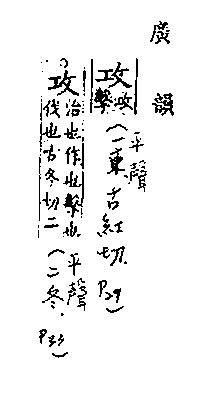 廣韻
攻
攻擊
(一東古紅切.
平聲
P29)
攻
治也作也擊也
伐也古冬切二
(二冬.
平聲
P33)